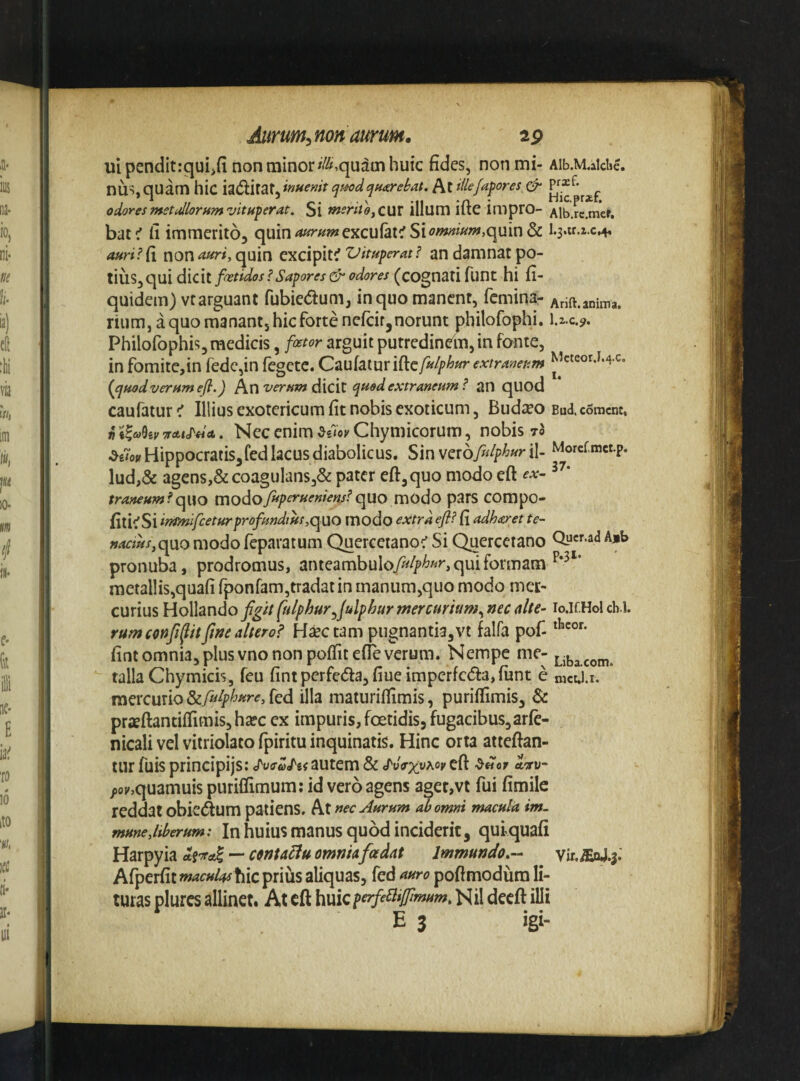 Aurum, non aurum. 29
ui pendit: qui, si non minor illi, quàm huic fides, non mi-
nùs, quàm hic iactitat, inuenit quod quærebat. At ille sapores &
odores metallorum vituperat. Si meritò, cur illum iste impro-
bat? si immeritò, quin aurum excusat? Si omnium, quin &
auri? si non auri, quin excipit? Vituperat? an damnat po-
tiùs, qui dicit fœtidos? Sapores & odores (cognati sunt hi si-
quidem) vt arguant subiectum, in quo manent, semina-
rium, à quo manant, hic fortè nescit, norunt philosophi.
Philosophis, medicis, fœtor arguit putredinem, in fonte,
in fomite, in sede, in segete. Causatur iste sulphur extraneum
(quod verum est.) An verum dicit quod extraneum? an quod
causatur? Illius exotericum fit nobis exoticum, Budæo
ἡ ἔξωθεν παιδεία. Nec enim θεῖον Chymicorum, nobis τὸ
θεῖον Hippocratis, sed lacus diabolicus. Sin verò sulphur il-
lud, & agens, & coagulans, & pater est, quo modo est ex-
traneum? quo modo superueniens? quo modo pars compo-
siti? Si immiscetur profundiùs, quo modo extrà est? si adhæret te-
naciùs, quo modo separatum Quercetano? Si Quercetano
pronuba, prodromus, anteambulo sulphur, qui formam
metallis, quasi sponsam, tradat in manum, quo modo mer-
curius Hollando figit sulphur, sulphur mercurium, nec alte-
rum consistit sine altero? Hæc tam pugnantia, vt falsa pos-
sint omnia, plus vno non possit esse verum. Nempe me-
talla Chymicis, seu sint perfecta, siue imperfecta, sunt è
mercurio & sulphure, sed illa maturissimis, purissimis, &
præstantissimis, hæc ex impuris, fœtidis, fugacibus, arse-
nicali vel vitriolato spiritu inquinatis. Hinc orta attestan-
tur suis principijs: δυσῶδες autem & δύσχυλον est θεῖον ἄπυ-
ρον, quamuis purissimum: id verò agens aget, vt sui simile
reddat obiectum patiens. At nec Aurum ab omni macula im-
mune, liberum: In huius manus quòd inciderit, qui quasi
Harpyia ἅρπαξ — contactu omnia fœdat Immundo.—
Asperfit maculas hic priùs aliquas, sed auro postmodùm li-
turas plures allinet. At est huic perfectissimum. Nil deest illi
E 3 igi-
Alb. M. alchē.
præf.
Hic. præf.
Alb. re. met.
l.3.tr.2.c.4.
Arist. anima.
l.2.c.9.
Meteor. l.4.c.
1.
Bud. cōment.
Moref. met. p.
37.
Quer. ad Anb
p.31.
Io. If. Hol ch. l.
theor.
Liba. com.
met. l.1.
Vir. Æn. l.3.